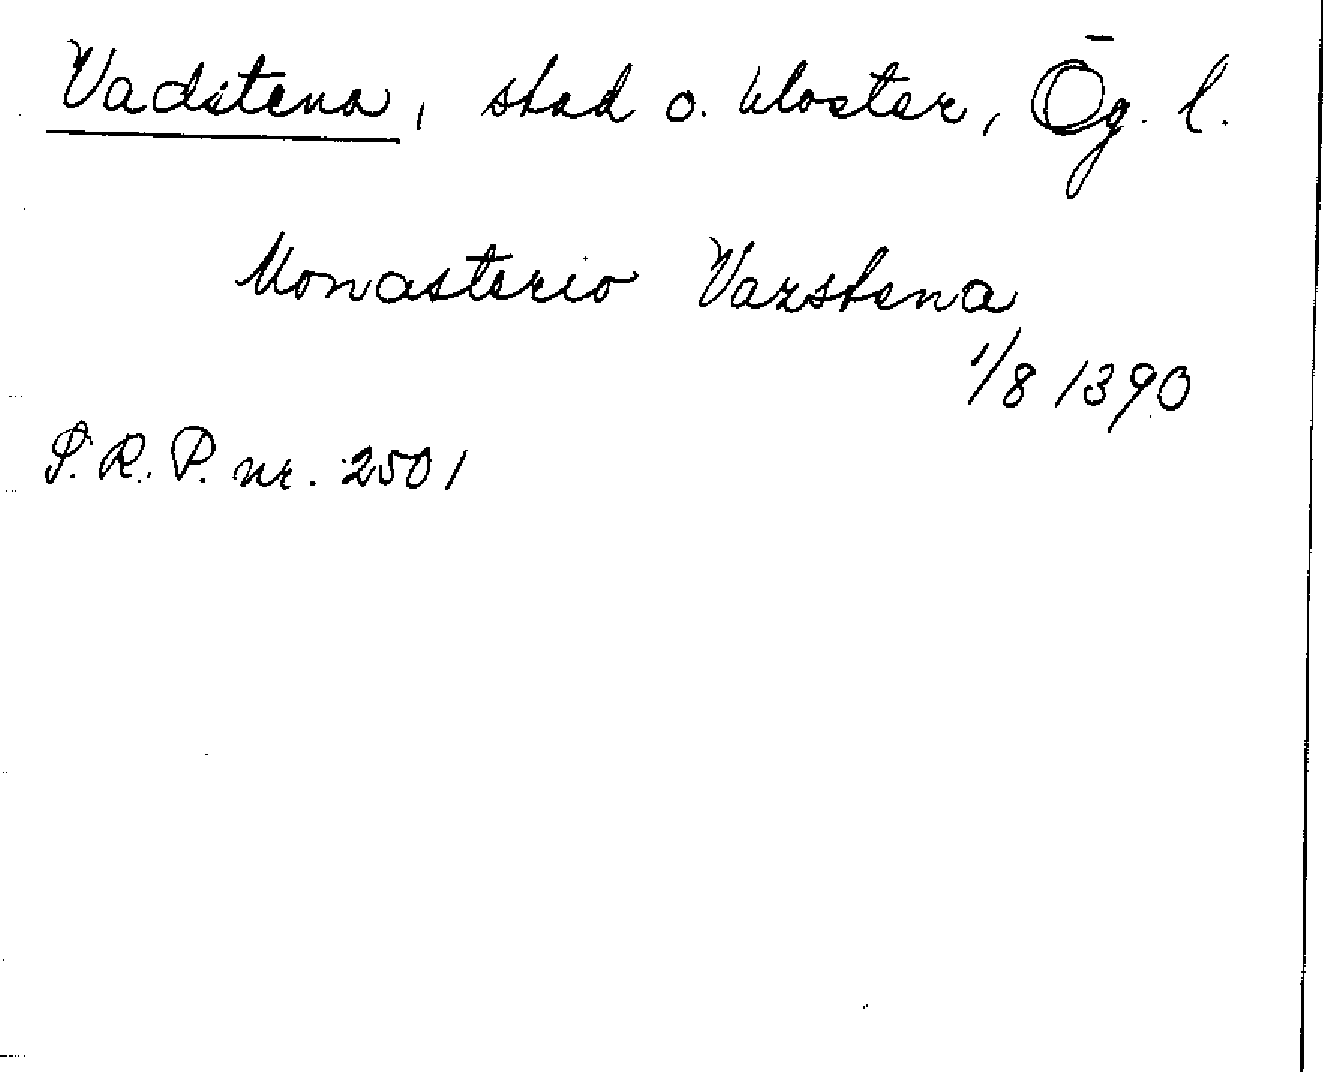 Vadstena, stad o. kloster, Ög. l.
Monasterio Varstena
1/8 1390
S.R.P. nr. 2501